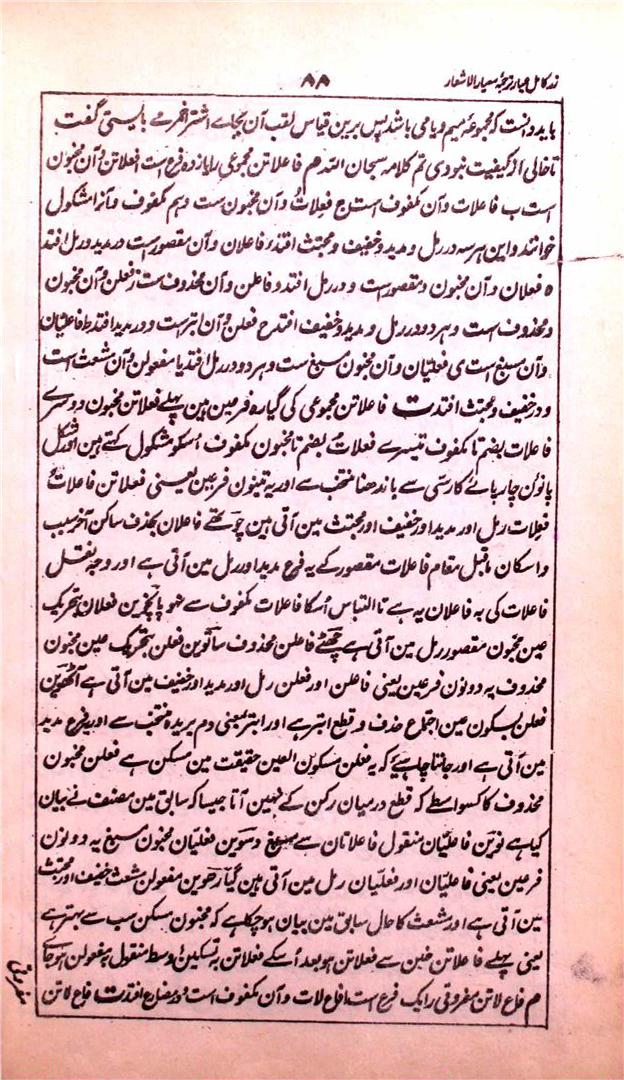 زر کامل عیار ترجمۂ معیار الاشعار
۸۸
باید دانست کہ مجموعۂ میم و یامی باشد پس برین قیاس لقب آن بجاے اشتر اخرم مے بایستی گفت
تاخالی از کیفیت نبودی تم کلامہ سبحان اللہ ھم فاعلاتن مجموعی را یازدہ فرع است ا فعلاتن و آن مخبون
است ب فاعلات و آن مکفوف است ج فعلات و آن مخبون ست و ہم مکفوف و آنرا مشکول
خوانند و این ہر سہ در رمل و مدید و خفیف و مجتث افتد د فاعلان و آن مقصور است در مدید در مل افتد
ہ فعلان و آن مخبون و مقصور است و در رمل افتد و فاعلن و آن محذوف ست ز فعلن و آن مخبون
و محذوف است و ہر دو در رمل و مدید و خفیف افتد ح فعلن و آن ابتر ست و در مدید افتد ط فاعلیّان
و آن مسبغ است ی فعلیّان و آن مخبون مسبغ ست و ہر دو در رمل افتد یا مفعولن و آن مشعث است
و در خفیف و مجتث افتد ت فاعلاتن مجموعی کی گیارہ فرعین ہین پہلے فعلاتن مخبون دوسرے
فاعلات بضم تا مکفوف تیسرے فعلات بضم تا مخبون مکفوف اسکو مشکول کہتے ہین اور شکل
پانوٴن چارپاے کا رسّی سے باندھنا منتخب سے اور یہ تینون فرعین یعنی فعلاتن فاعلات
فعلات رمل اور مدید اور خفیف اور مجتث مین آتی ہین چوتھے فاعلان بحذف ساکن آخر سبب
و اسکان ماقبل مقام فاعلات مقصور کے یہ فرع مدید اور رمل مین آتی ہے اور وجہ نقل
فاعلات کی بہ فاعلان یہ ہے تا التباس اسکا فاعلات مکفوف سے نہو پانچوین فعلان بتحریک
عین مخبون مقصور رمل مین آتی ہے چھٹے فاعلن محذوف ساتوین فعلن بتحریک عین مخبون
محذوف یہ دونون فرعین یعنی فاعلن اور فعلن رمل اور مدید اور خفیف مین آتی ہے آٹھوین
فعلن بسکون عین اجتماع حذف و قطع ابتر ہے اور ابتر بمعنی دم بریدہ منتخب سے اور یہ فرع مدید
مین آتی ہے اور جاننا چاہیے کہ یہ فعلن مسکون العین حقیقت مین مسکن ہے فعلن مخبون
محذوف کا کسواسطے کہ قطع درمیان رکن کے نہین آتا جیسا کہ سابق مین مصنف نے بیان
کیا ہے نوین فاعلیّان منقول فاعلاتان سے مسبغ دسوین فعلیّان مخبون مسبغ یہ دونون
فرعین یعنی فاعلیّان اور فعلیّان رمل مین آتی ہین گیارھوین مفعولن مشعث خفیف اور مجتث
مین آتی ہے اور مشعث کا حال سابق مین بیان ہو چکا ہے کہ مخبون مسکن سب سے بہتر ہے
یعنی پہلے فاعلاتن خبن سے فعلاتن ہو بعد اسکے فعلاتن بہ تسکین اوسط منقول بہ مفعولن ہوجاے
م فاع لاتن مفروقی را یک فرع است ا فاع لات و آن مکفوف است و در مضارع افتد ت فاع لاتن
مفروقی